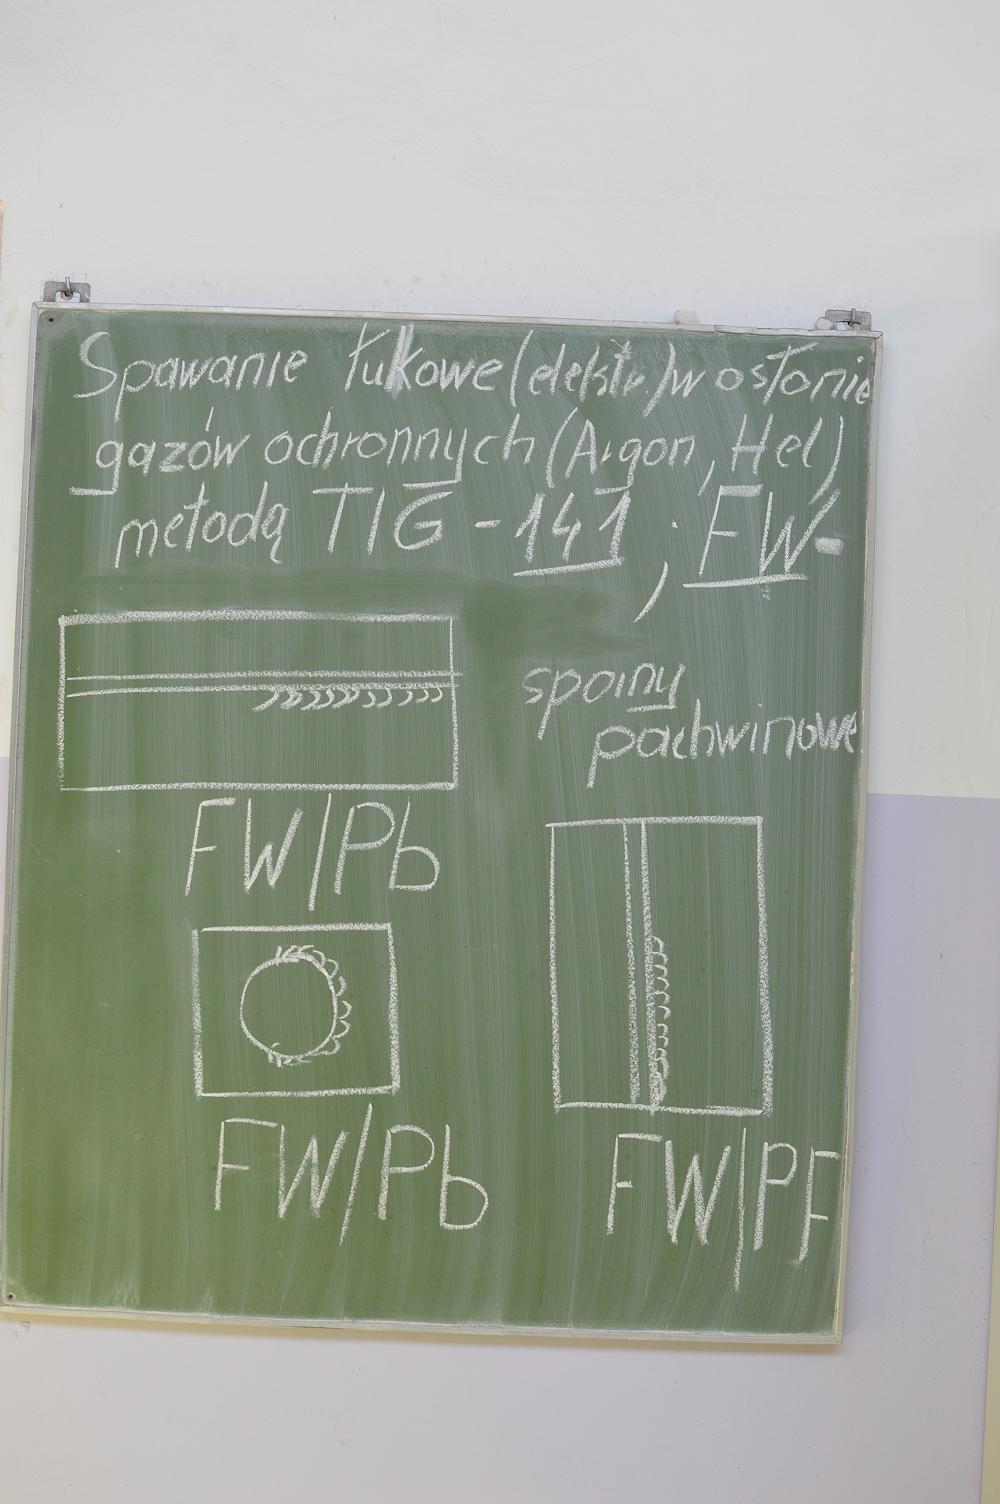 Spawanie łukowe (elektr.) w osłonie
gazów ochronnych (Argon, Hel)
metodą TIG - 141 ; FW-
spoiny
pachwinowe
FW/Pb
FW/Pb
FW/PF